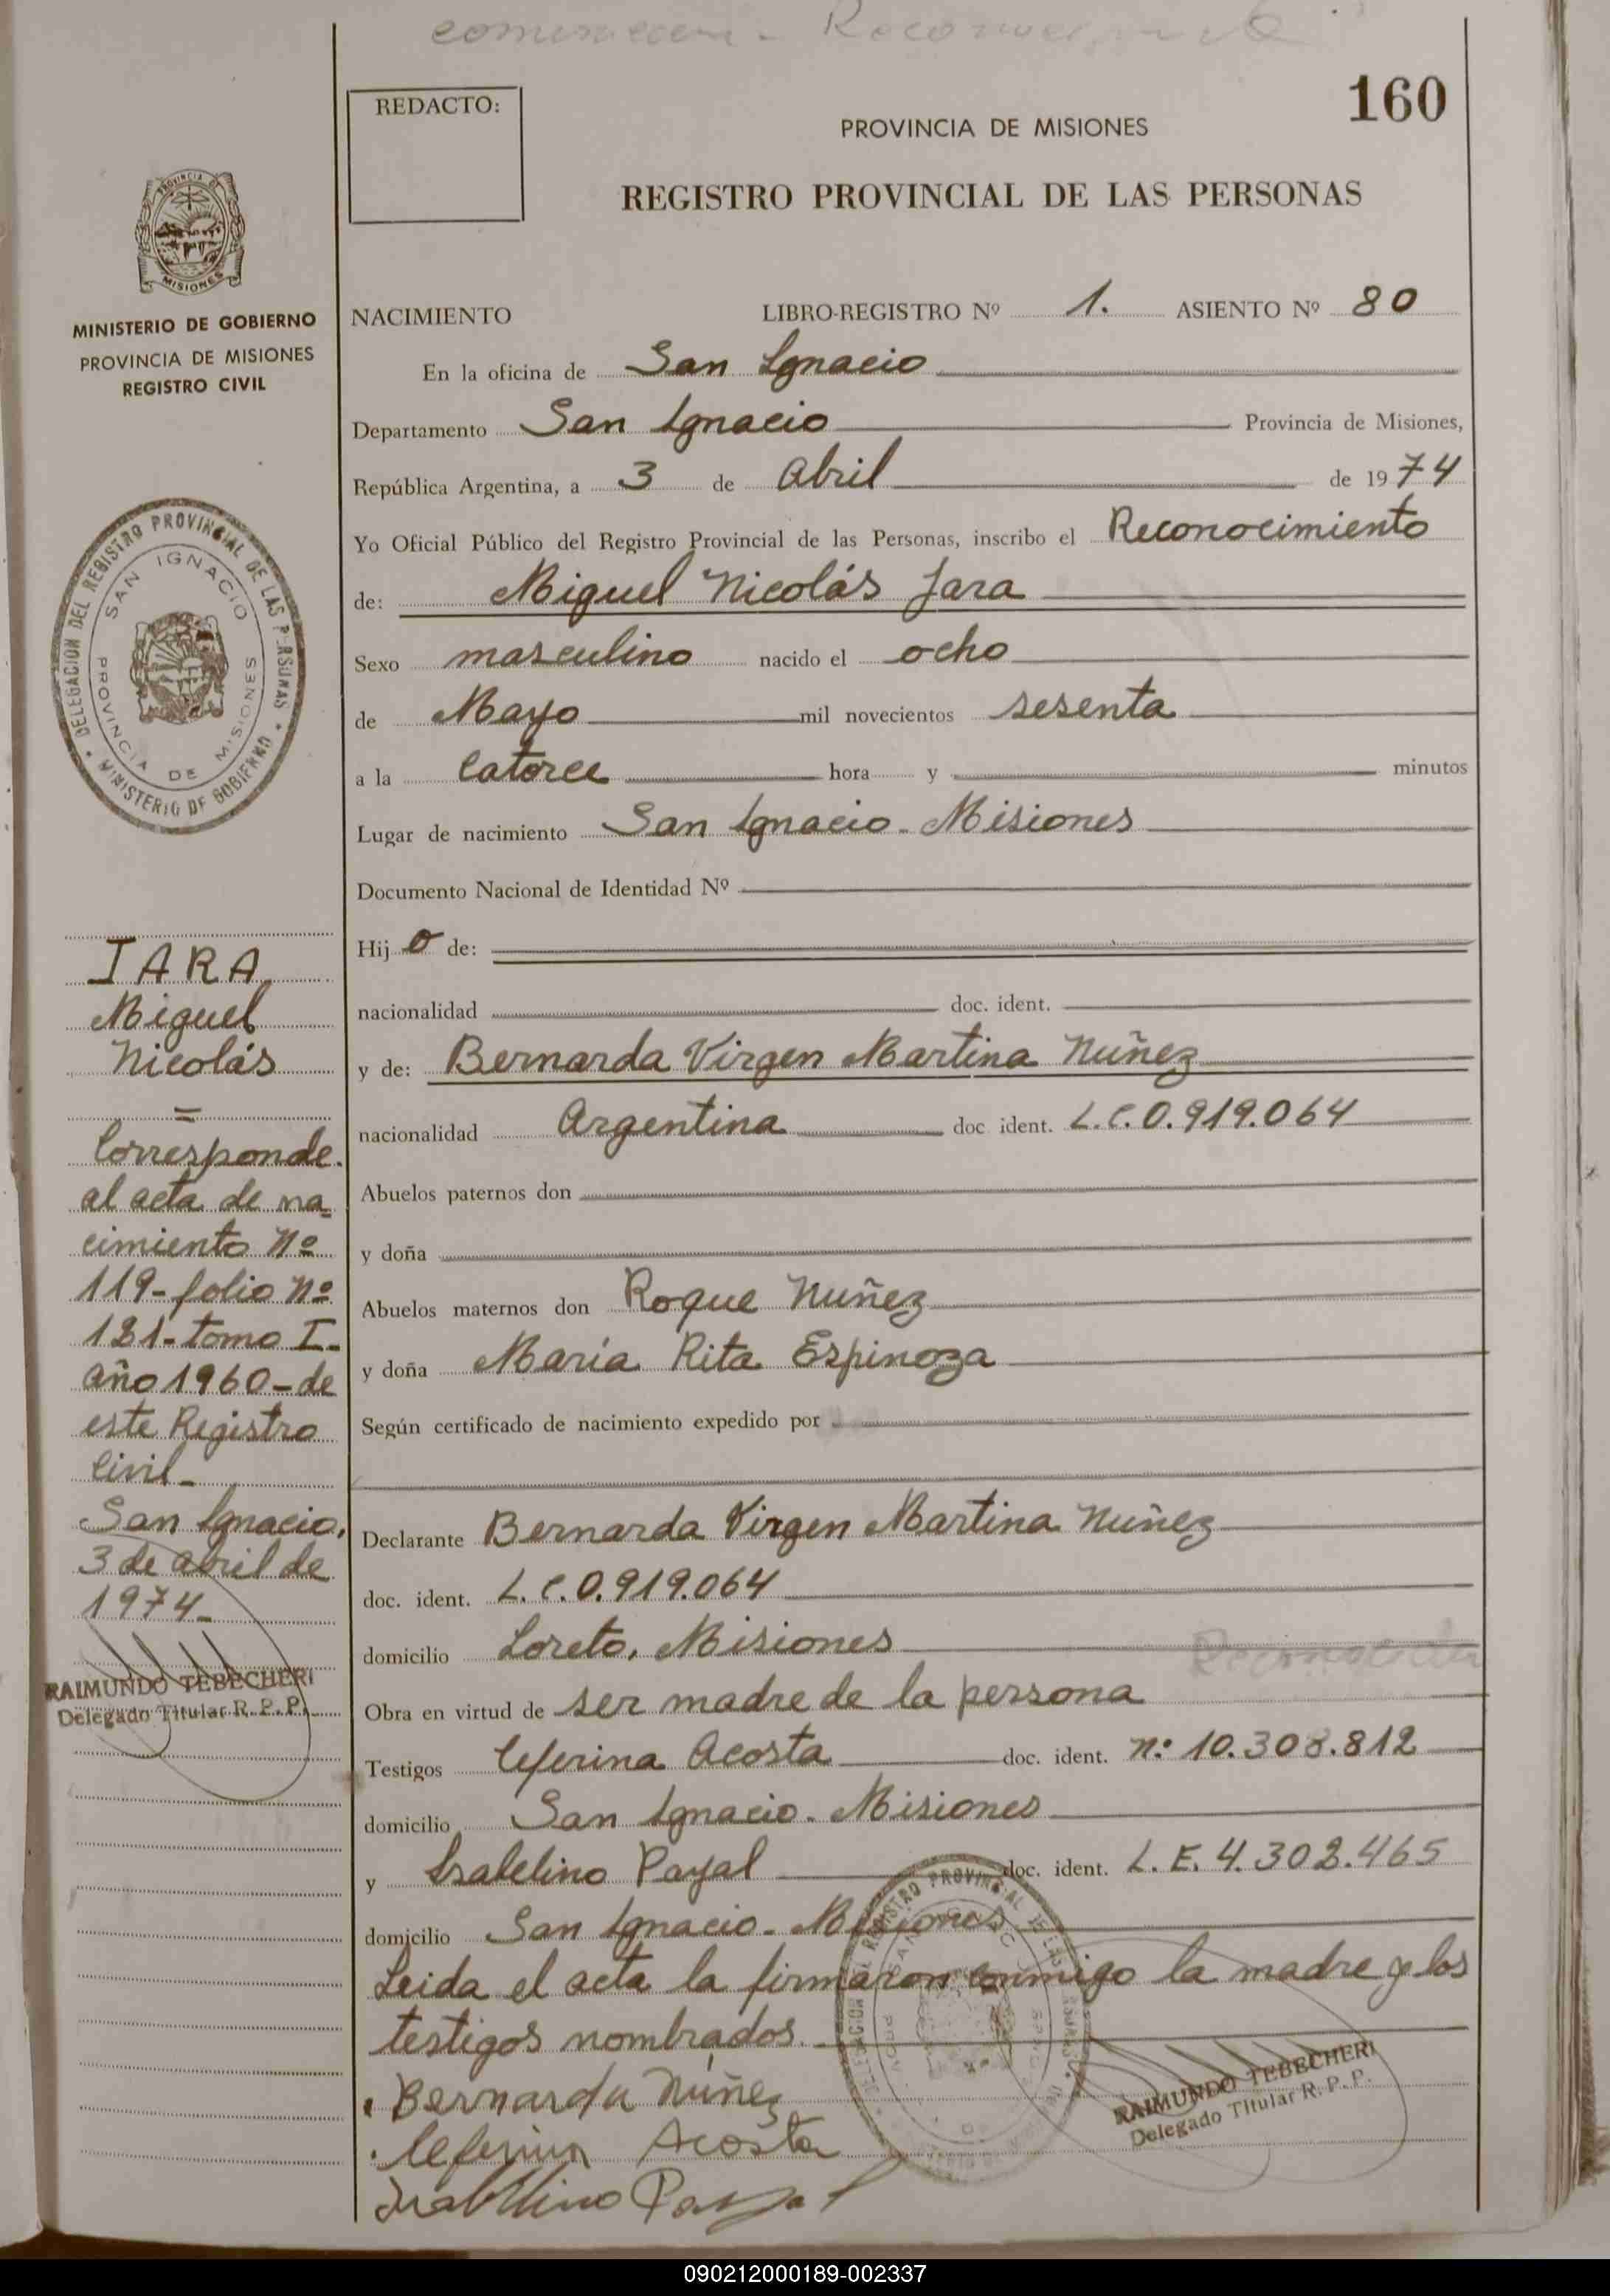 Reconocimiento
160
REDACTO:
PROVINCIA DE MISIONES
REGISTRO PROVINCIAL DE LAS PERSONAS
PROVINCIA DE
MISIONES
MINISTERIO DE GOBIERNO
PROVINCIA DE MISIONES
REGISTRO CIVIL
NACIMIENTO LIBRO-REGISTRO Nº 1. ASIENTO Nº 80
En la oficina de San Ignacio
Departamento San Ignacio Provincia de Misiones,
República Argentina, a 3 de Abril de 1974
Yo Oficial Público del Registro Provincial de las Personas, inscribo el Reconocimiento
de: Miguel Nicolás Jara
Sexo masculino nacido el ocho
de Mayo mil novecientos sesenta
a la catorce hora y minutos
Lugar de nacimiento San Ignacio - Misiones
Documento Nacional de Identidad Nº
Hijo de:
nacionalidad doc. ident.
y de: Bernarda Virgen Martina Nuñez
nacionalidad Argentina doc ident. L.C.0.919.064
Abuelos paternos don
y doña
Abuelos maternos don Roque Nuñez
y doña María Rita Espinoza
Según certificado de nacimiento expedido por
Declarante Bernarda Virgen Martina Nuñez
doc. ident. L.C.0.919.064
domicilio Loreto, Misiones
Obra en virtud de ser madre de la persona
Testigos Ceferina Acosta doc. ident. n.º 10.308.812
domicilio San Ignacio - Misiones
y Isabelino Payal doc. ident. L.E. 4.302.465
domicilio San Ignacio - Misiones
Leida el acta la firmaron conmigo la madre y los
testigos nombrados.
Bernarda Núñez
Ceferina Acosta
Isabelino Payal
RAIMUNDO TEBECHERI
Delegado Titular R. P. P.
DELEGACION DEL REGISTRO PROVINCIAL DE LAS PERSONAS
MINISTERIO DE GOBIERNO
SAN IGNACIO
PROVINCIA DE MISIONES
JARA
Miguel
Nicolás
=
Corresponde
al acta de na=
cimiento Nº
119-folio nº
121-tomo I-
año 1960-de
este Registro
Civil-
San Ignacio,
3 de abril de
1974-
RAIMUNDO TEBECHERI
Delegado Titular R. P. P.
090212000189-002337